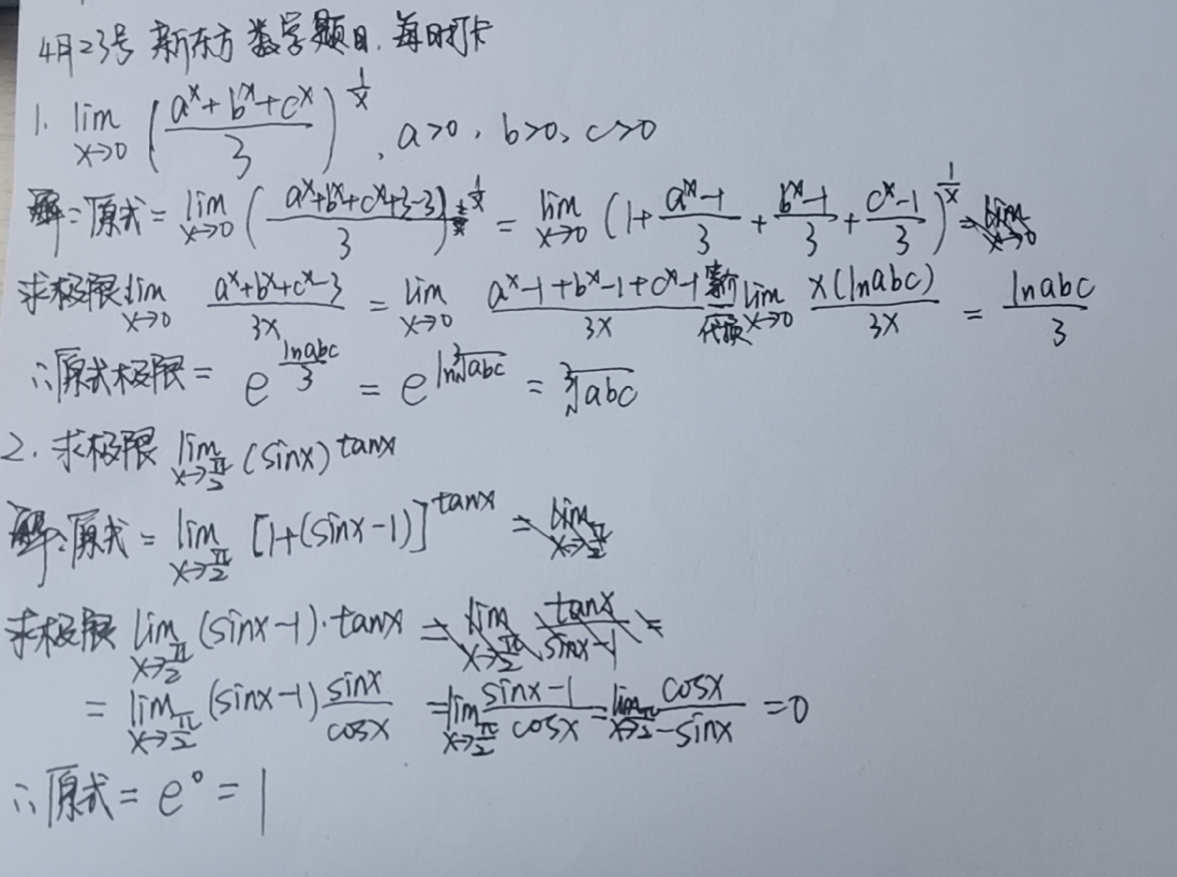 4月23号 新东方 数学题目，每日打卡
1. lim x→0 ((a^x+b^x+c^x)/3)^(1/x)，a>0，b>0，c>0
解：原式= lim x→0 ((a^x+b^x+c^x+3-3)/3)^(1/x) = lim x→0 (1+(a^x-1)/3+(b^x-1)/3+(c^x-1)/3)^(1/x)
求极限 lim x→0 (a^x+b^x+c^x-3)/3x = lim x→0 (a^x-1+b^x-1+c^x-1)/3x 等价代换= lim x→0 x(lnabc)/3x = lnabc/3
∴原式极限= e^(lnabc/3) = e^(ln∛abc) = ∛abc
2. 求极限 lim x→π/2 (sinx)^tanx
解：原式= lim x→π/2 [1+(sinx-1)]^tanx
求极限 lim x→π/2 (sinx-1)·tanx
= lim x→π/2 (sinx-1) sinx/cosx = lim x→π/2 (sinx-1)/cosx = lim x→π/2 cosx/-sinx =0
∴原式= e^0 = 1